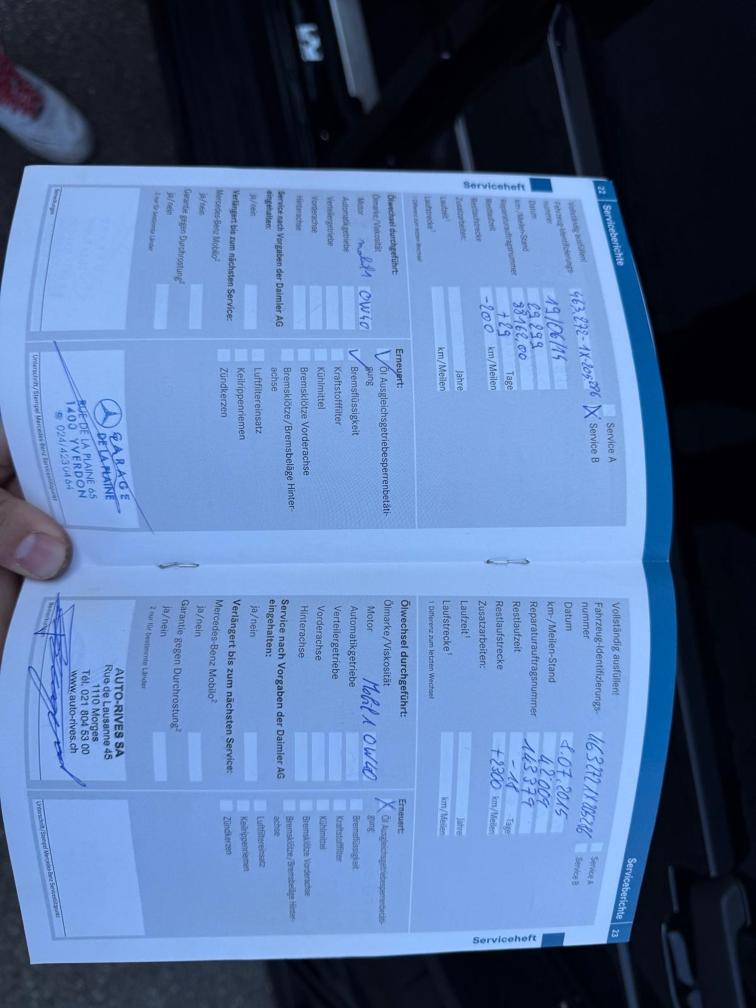 22 Serviceberichte
Vollständig ausfüllen!
Fahrzeug-Identifizierungs-
nummer
Service A
X Service B
Datum 19/06/14
km-/Meilen-Stand 29 299
Reparaturauftragsnummer
Restlaufzeit +29 Tage
Restlaufstrecke -200 km/Meilen
Zusatzarbeiten:
Laufzeit¹ Jahre
Laufstrecke¹ km/Meilen
Ölwechsel durchgeführt:
Ölmarke/Viskosität
Motor 0W40
Automatikgetriebe
Verteilergetriebe
Vorderachse
Hinterachse
Service nach Vorgaben der Daimler AG
eingehalten:
ja/nein
Verlängert bis zum nächsten Service:
Mercedes-Benz Mobilo²
ja/nein
Garantie gegen Durchrostung²
ja/nein
2 nur für bestimmte Länder
Erneuert:
Öl Ausgleichsgetriebesperrenbetäti-
gung
Bremsflüssigkeit
Kraftstofffilter
Kühlmittel
Bremsklötze Vorderachse
Bremsklötze/Bremsbeläge Hinter-
achse
Luftfiltereinsatz
Keilrippenriemen
Zündkerzen
GARAGE
DE LA PLAINE
RUE DE LA PLAINE 65
1400 YVERDON
Unterschrift/Stempel Mercedes-Benz Servicestützpunkt
Serviceheft
Serviceberichte 23
Vollständig ausfüllen!
Fahrzeug-Identifizierungs-
nummer
Service A
Service B
Datum 8.07.2015
km-/Meilen-Stand 42009
Reparaturauftragsnummer 143379
Restlaufzeit Tage
Restlaufstrecke +2300 km/Meilen
Zusatzarbeiten:
Laufzeit¹ Jahre
Laufstrecke¹ km/Meilen
1 Differenz zum letzten Wechsel
Ölwechsel durchgeführt:
Ölmarke/Viskosität
Motor Mobil 1 0W40
Automatikgetriebe
Verteilergetriebe
Vorderachse
Hinterachse
Service nach Vorgaben der Daimler AG
eingehalten:
ja/nein
Verlängert bis zum nächsten Service:
Mercedes-Benz Mobilo²
ja/nein
Garantie gegen Durchrostung²
ja/nein
2 nur für bestimmte Länder
Erneuert:
X Öl Ausgleichsgetriebesperrenbetäti-
gung
Bremsflüssigkeit
Kraftstofffilter
Kühlmittel
Bremsklötze Vorderachse
Bremsklötze/Bremsbeläge Hinter-
achse
Luftfiltereinsatz
Keilrippenriemen
Zündkerzen
AUTO-RIVES SA
Rue de Lausanne 45
1110 Morges
Tél. 021 804 53 00
www.auto-rives.ch
Unterschrift/Stempel Mercedes-Benz Servicestützpunkt
Serviceheft